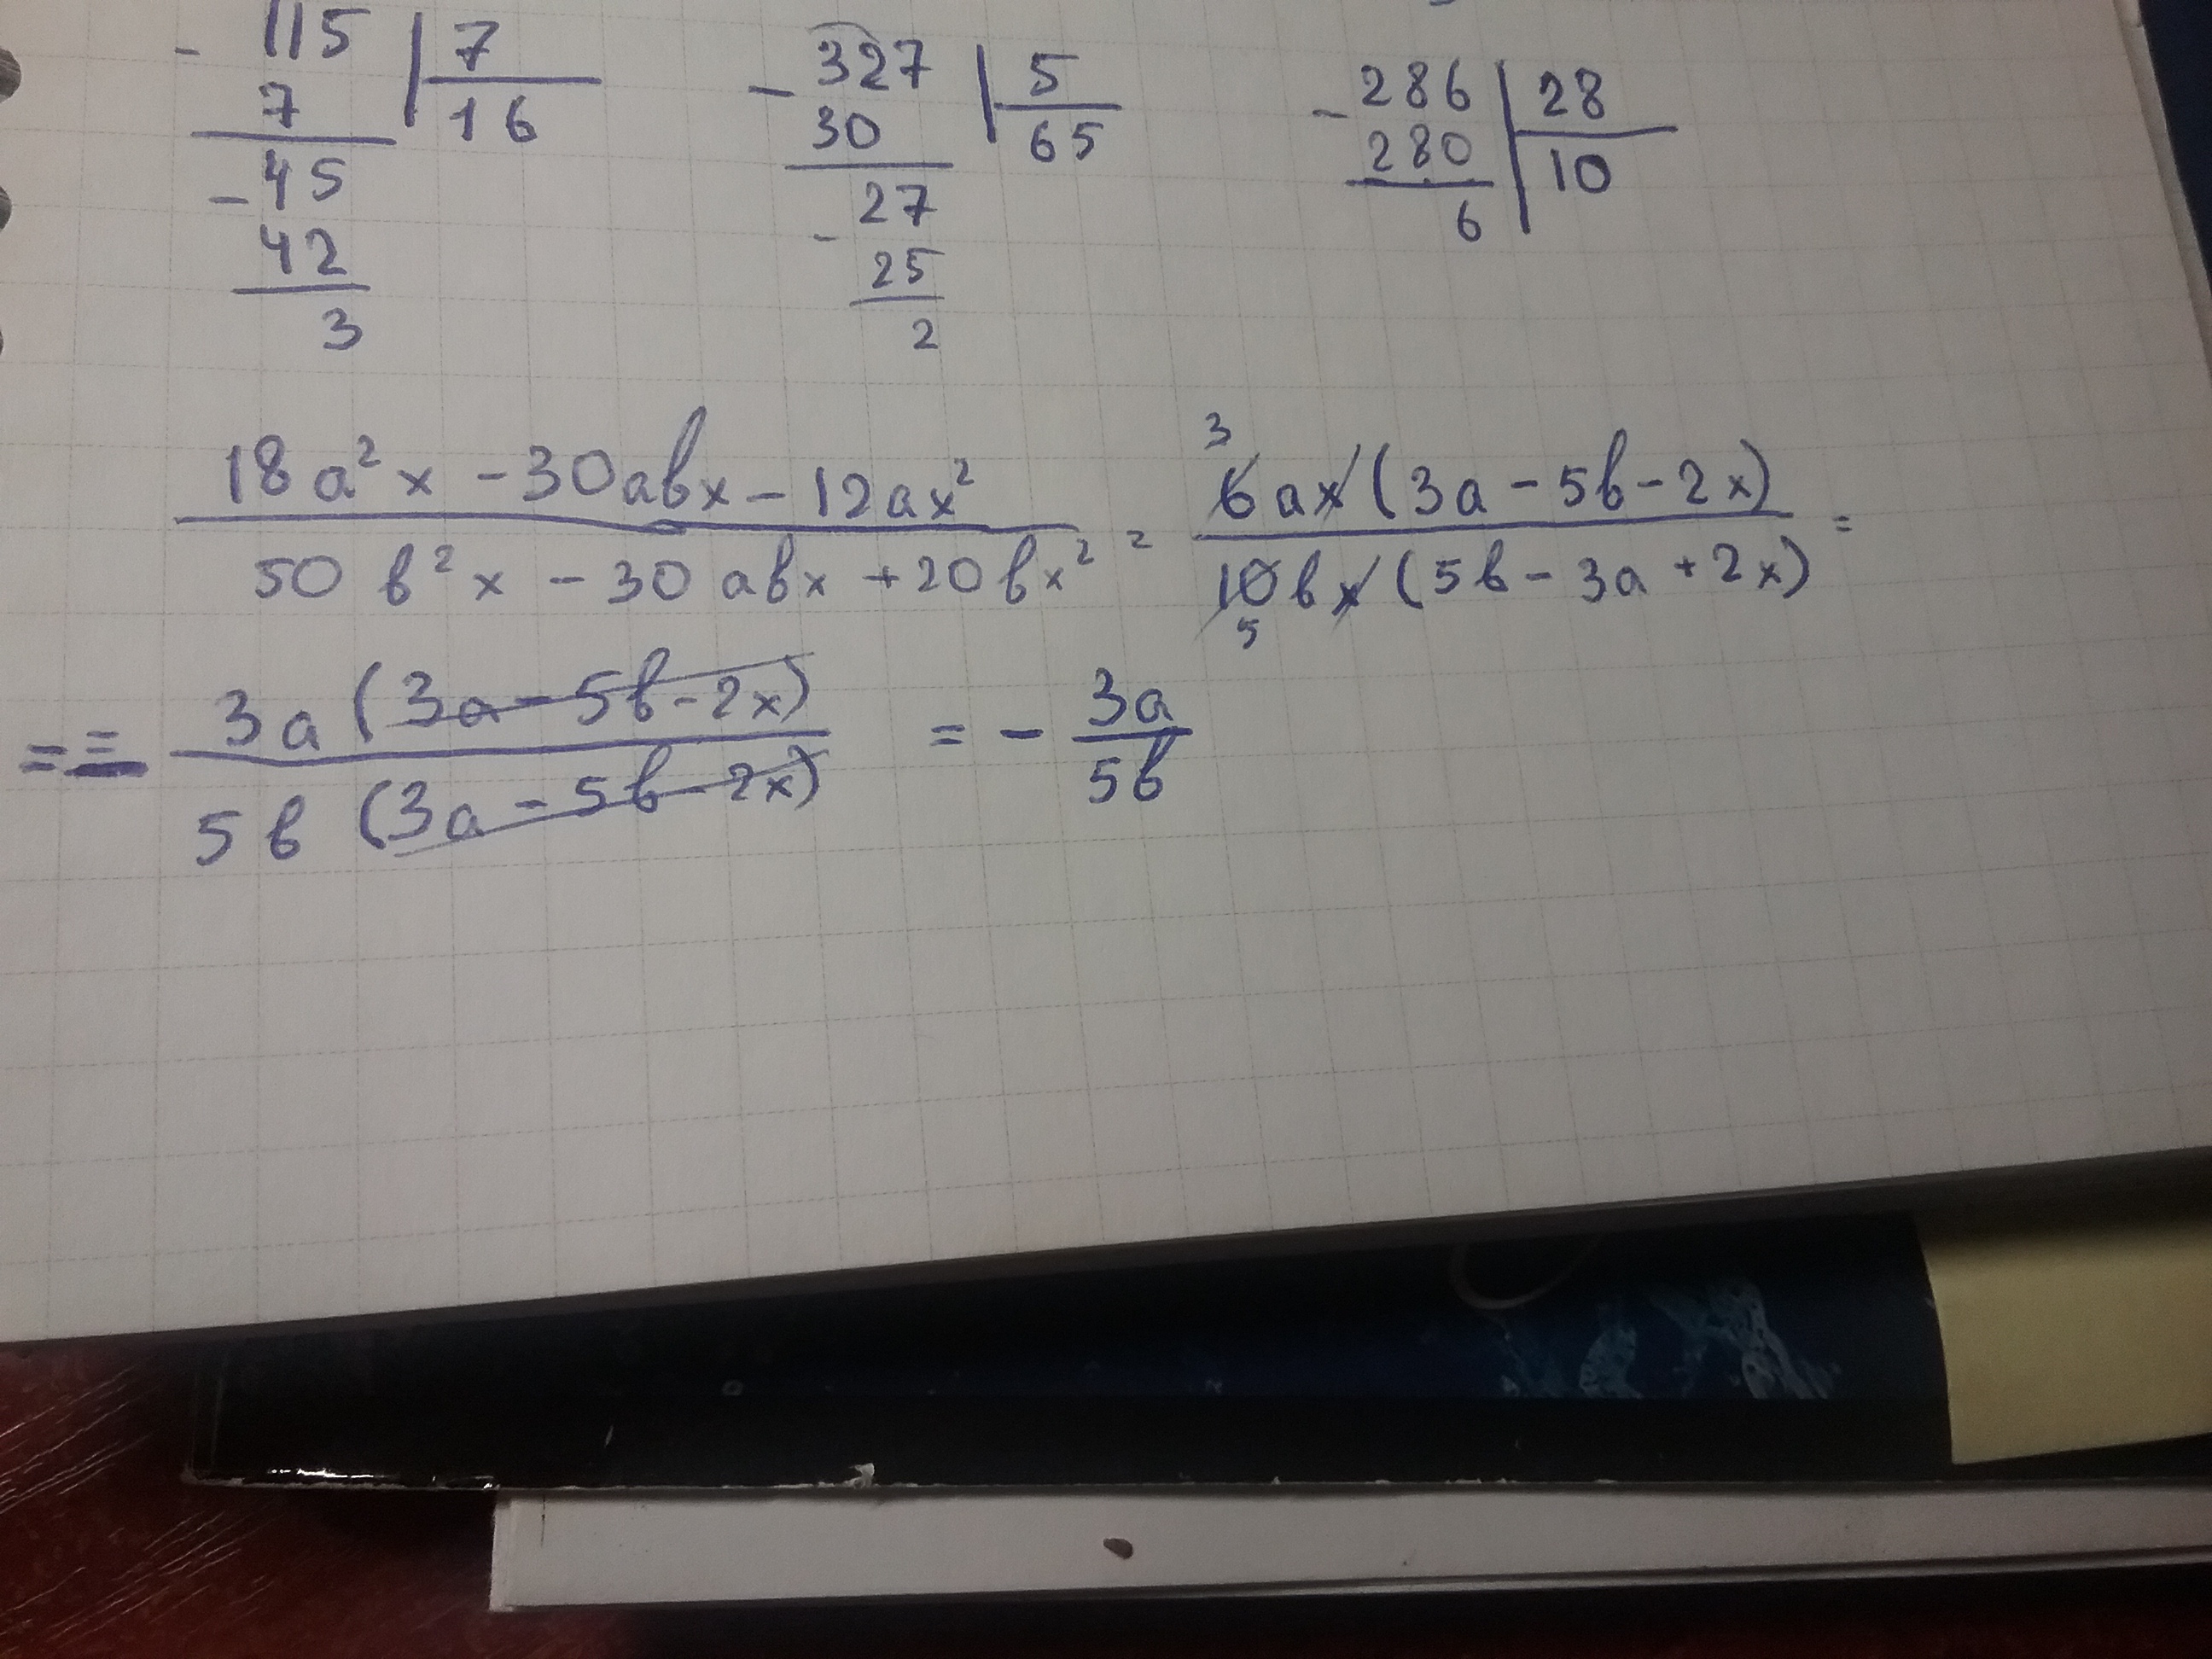 - 115 | 7
7 16
- 45
42
3
- 327 | 5
30 65
- 27
25
2
- 286 | 28
280 10
6
18a²x - 30abx - 12ax² / 50b²x - 30abx + 20bx² = 3 6ax(3a - 5b - 2x) / 10bx(5b - 3a + 2x) 5 =
= = - 3a(3a - 5b - 2x) / 5b(3a - 5b - 2x) = - 3a / 5b